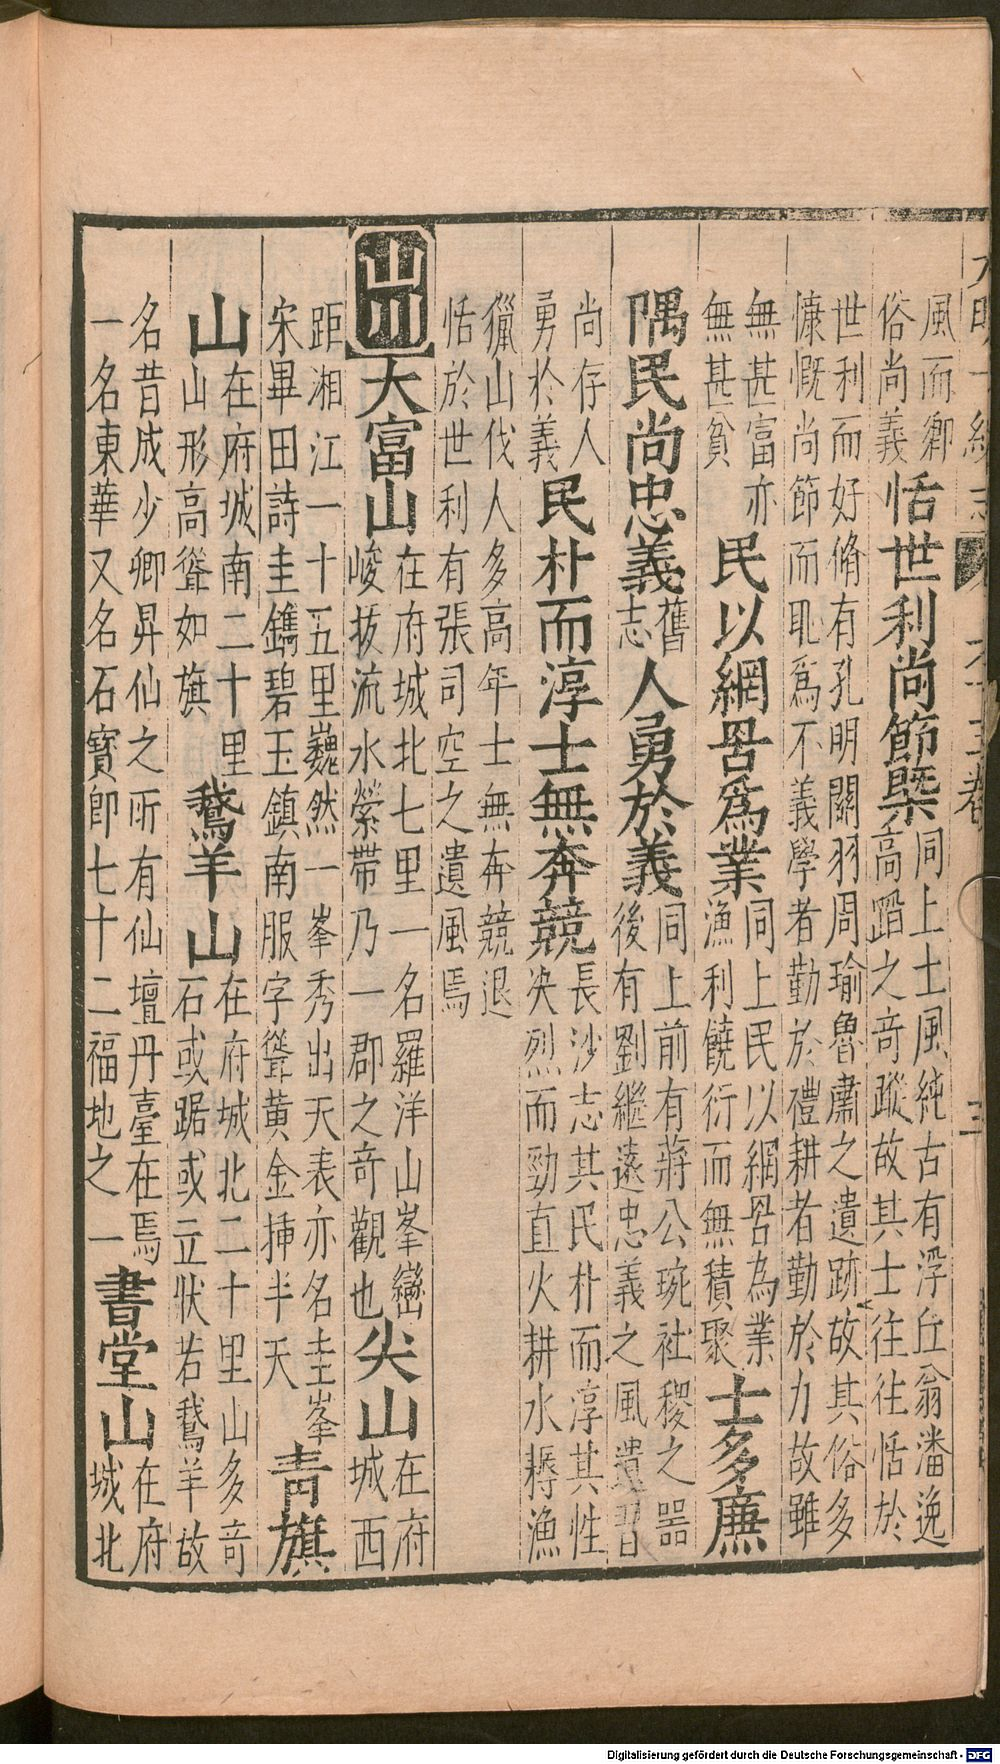 大明一統志 卷六十三卷 三
風而鄉俗尚義恬世利尚節槩同上土風純古有浮丘翁潘逸高蹈之竒蹤故其士往往恬於
世利而好脩有孔明關羽周瑜魯肅之遺跡故其俗多慷慨尚節而恥爲不義學者勤於禮耕者勤於力故雖
無甚富亦無甚貧民以網罟爲業同上民以網罟為業漁利饒衍而無積聚士多廉
隅民尚忠義舊志人勇於義同上前有蔣公琬社稷之器後有劉繼遠忠義之風遺習
尚存人勇於義民朴而淳士無奔競長沙志其民朴而淳其性决烈而勁直火耕水耨漁
獵山伐人多高年士無奔競退恬於世利有張司空之遺風焉
山川大富山在府城北七里一名羅洋山峯巒峻拔流水縈帶乃一郡之竒觀也尖山在府城西
距湘江一十五里巍然一峯秀出天表亦名圭峯宋畢田詩圭鐫碧玉鎮南服字聳黄金挿半天青旗
山在府城南二十里山形高聳如旗鵝羊山在府城北二十里山多竒石或踞或立狀若鵝羊故
名昔成少卿昇仙之所有仙壇丹臺在焉一名東華又名石寶即七十二福地之一書堂山在府城北
Digitalisierung gefördert durch die Deutsche Forschungsgemeinschaft - DFG